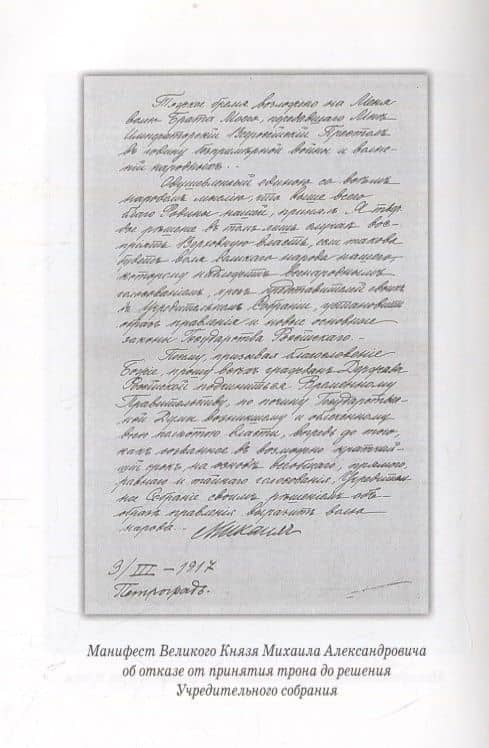 Тяжкое бремя возложено на Меня
волею Брата Моего, передавшаго Мнѣ
Императорскій Всероссійскій Престолъ
въ годину безпримѣрной войны и волне-
ній народныхъ.
Одушевленный единою со всѣмъ
народомъ мыслію, что выше всего
благо Родины нашей, принялъ Я твер-
дое рѣшеніе въ томъ лишь случаѣ вос-
принять Верховную власть, если такова
будетъ воля великаго народа нашего,
которому надлежитъ всенароднымъ
голосованіемъ, чрезъ представителей своихъ
въ Учредительномъ Собраніи, установить
образъ правленія и новые основные
законы Государства Россійскаго.
Посему, призывая благословеніе
Божіе, прошу всѣхъ гражданъ Державы
Россійской подчиниться Временному
Правительству, по почину Государствен-
ной Думы возникшему и облеченному
всею полнотою власти, впредь до того,
какъ созванное въ возможно кратчай-
шій срокъ, на основѣ всеобщаго, прямого,
равнаго и тайнаго голосованія, Учредитель-
ное Собраніе своимъ рѣшеніемъ объ
образѣ правленія выразитъ волю
народа.
Михаилъ
3/III – 1917
Петроградъ.
Манифест Великого Князя Михаила Александровича
об отказе от принятия трона до решения
Учредительного собрания